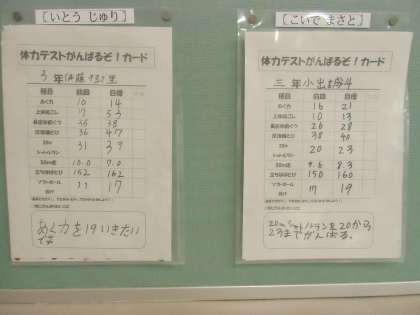 [いとう じゅり]
体力テストがんばるぞ！カード
3年伊藤
種目 前回 目標
あく力 10 14
上体起こし 17
長座体前くつ 38
反復横とび 36 47
20m
シャトルラン 31
50m走 10.0 9.0
立ちはばとび 152 162
ソフトボール
投げ 11 17
あく力を19いきたい
です
[こいで まさと]
体力テストがんばるぞ！カード
三年小出
種目 前回 目標
あく力 16 21
上体起こし 10 13
長座体前くつ 26 28
反復横とび 38 40
20m
シャトルラン 20 23
50m走 9.6 8.3
立ちはばとび 150 160
ソフトボール
投げ 17 19
20mシャトルランを20から
23までがんばる。